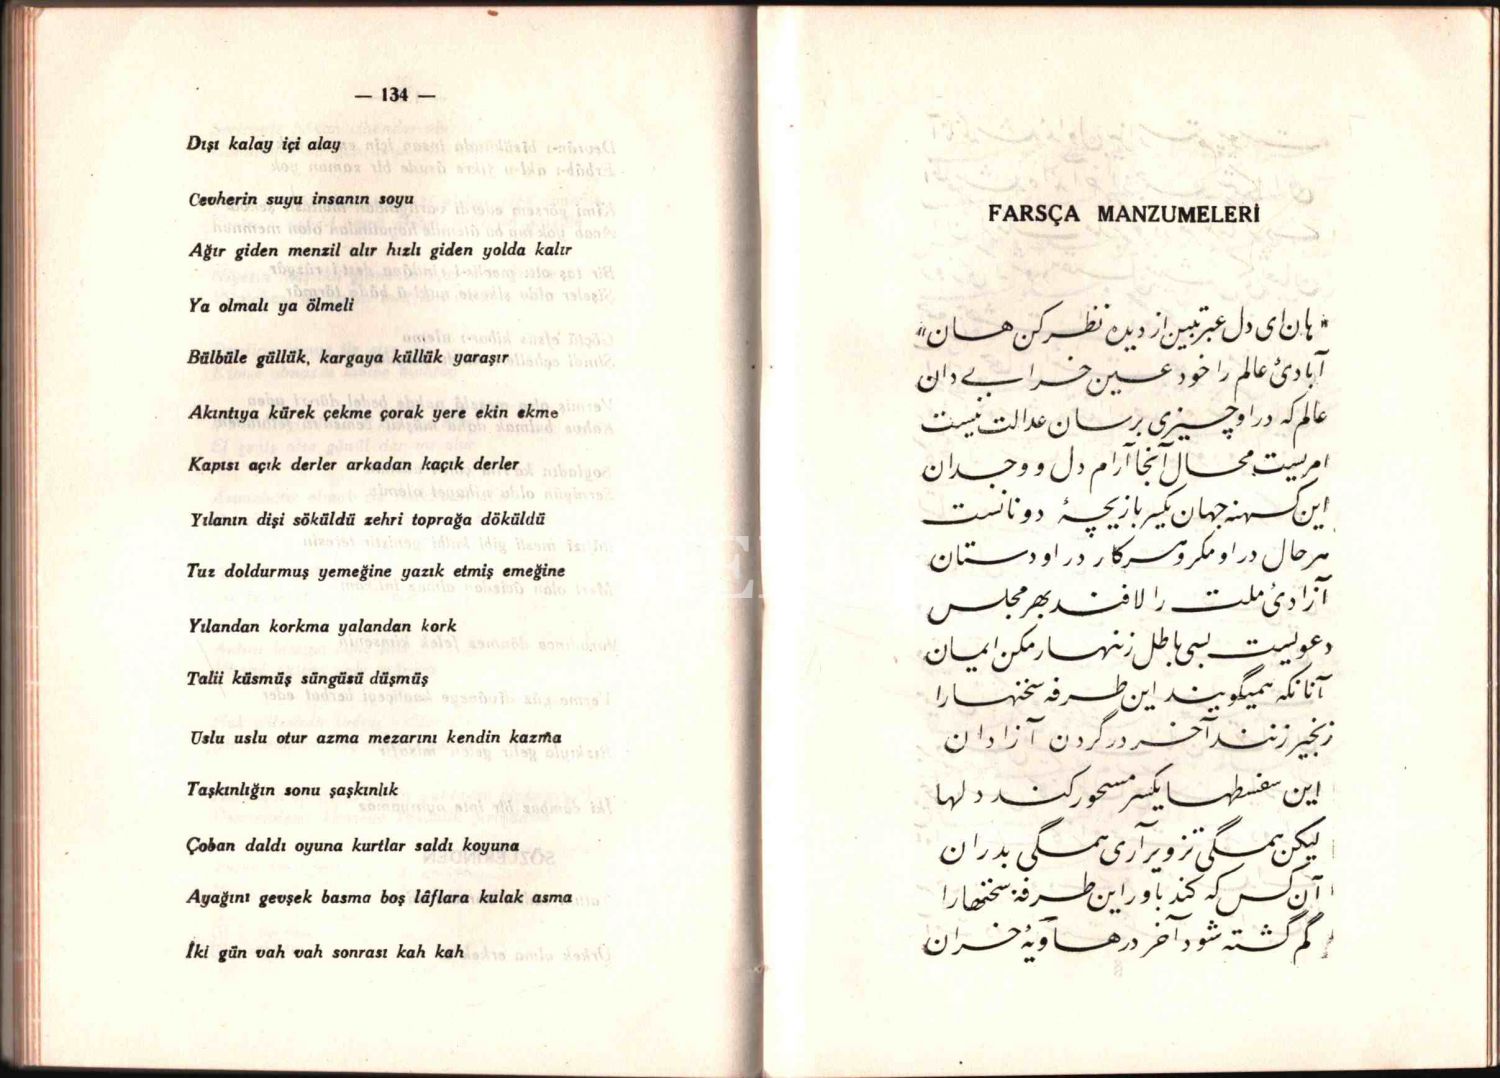 — 134 —
Dışı kalay içi alay
Cevherin suyu insanın soyu
Ağır giden menzil alır hızlı giden yolda kalır
Ya olmalı ya ölmeli
Bülbüle güllük, kargaya küllük yaraşır
Akıntıya kürek çekme çorak yere ekin ekme
Kapısı açık derler arkadan kaçık derler
Yılanın dişi söküldü zehri toprağa döküldü
Tuz doldurmuş yemeğine yazık etmiş emeğine
Yılandan korkma yalandan kork
Talii küsmüş süngüsü düşmüş
Uslu uslu otur azma mezarını kendin kazma
Taşkınlığın sonu şaşkınlık
Çoban daldı oyuna kurtlar saldı koyuna
Ayağını gevşek basma boş lâflara kulak asma
İki gün vah vah sonrası kah kah
FARSÇA MANZUMELERİ
« هان ای دل عبرتبین از دیده نظر کن هان »
آبادئ عالم را خود عین خرابی دان
عالم که در او چیزی برسان عدالت نیست
امریست محال آنجا آرام دل و وجدان
این کهنه جهان یکسر بازیچهٔ دونانست
هر حال در او مکر و هر کار در او دستان
آزادئ ملت را لافند بهر مجلس
دعویست بسی باطل زنهار مکن ایمان
آنانکه همیگویند این طرفه سخنها را
زنجیر زنند آخر در گردن آزادان
این سفسطها یکسر مسحور کند دلها
لیکن همگی تزویر آری همگی بدران
آن کس که کند باور این طرفه سخنها را
گم گشته شود آخر در هاویهٔ خسران